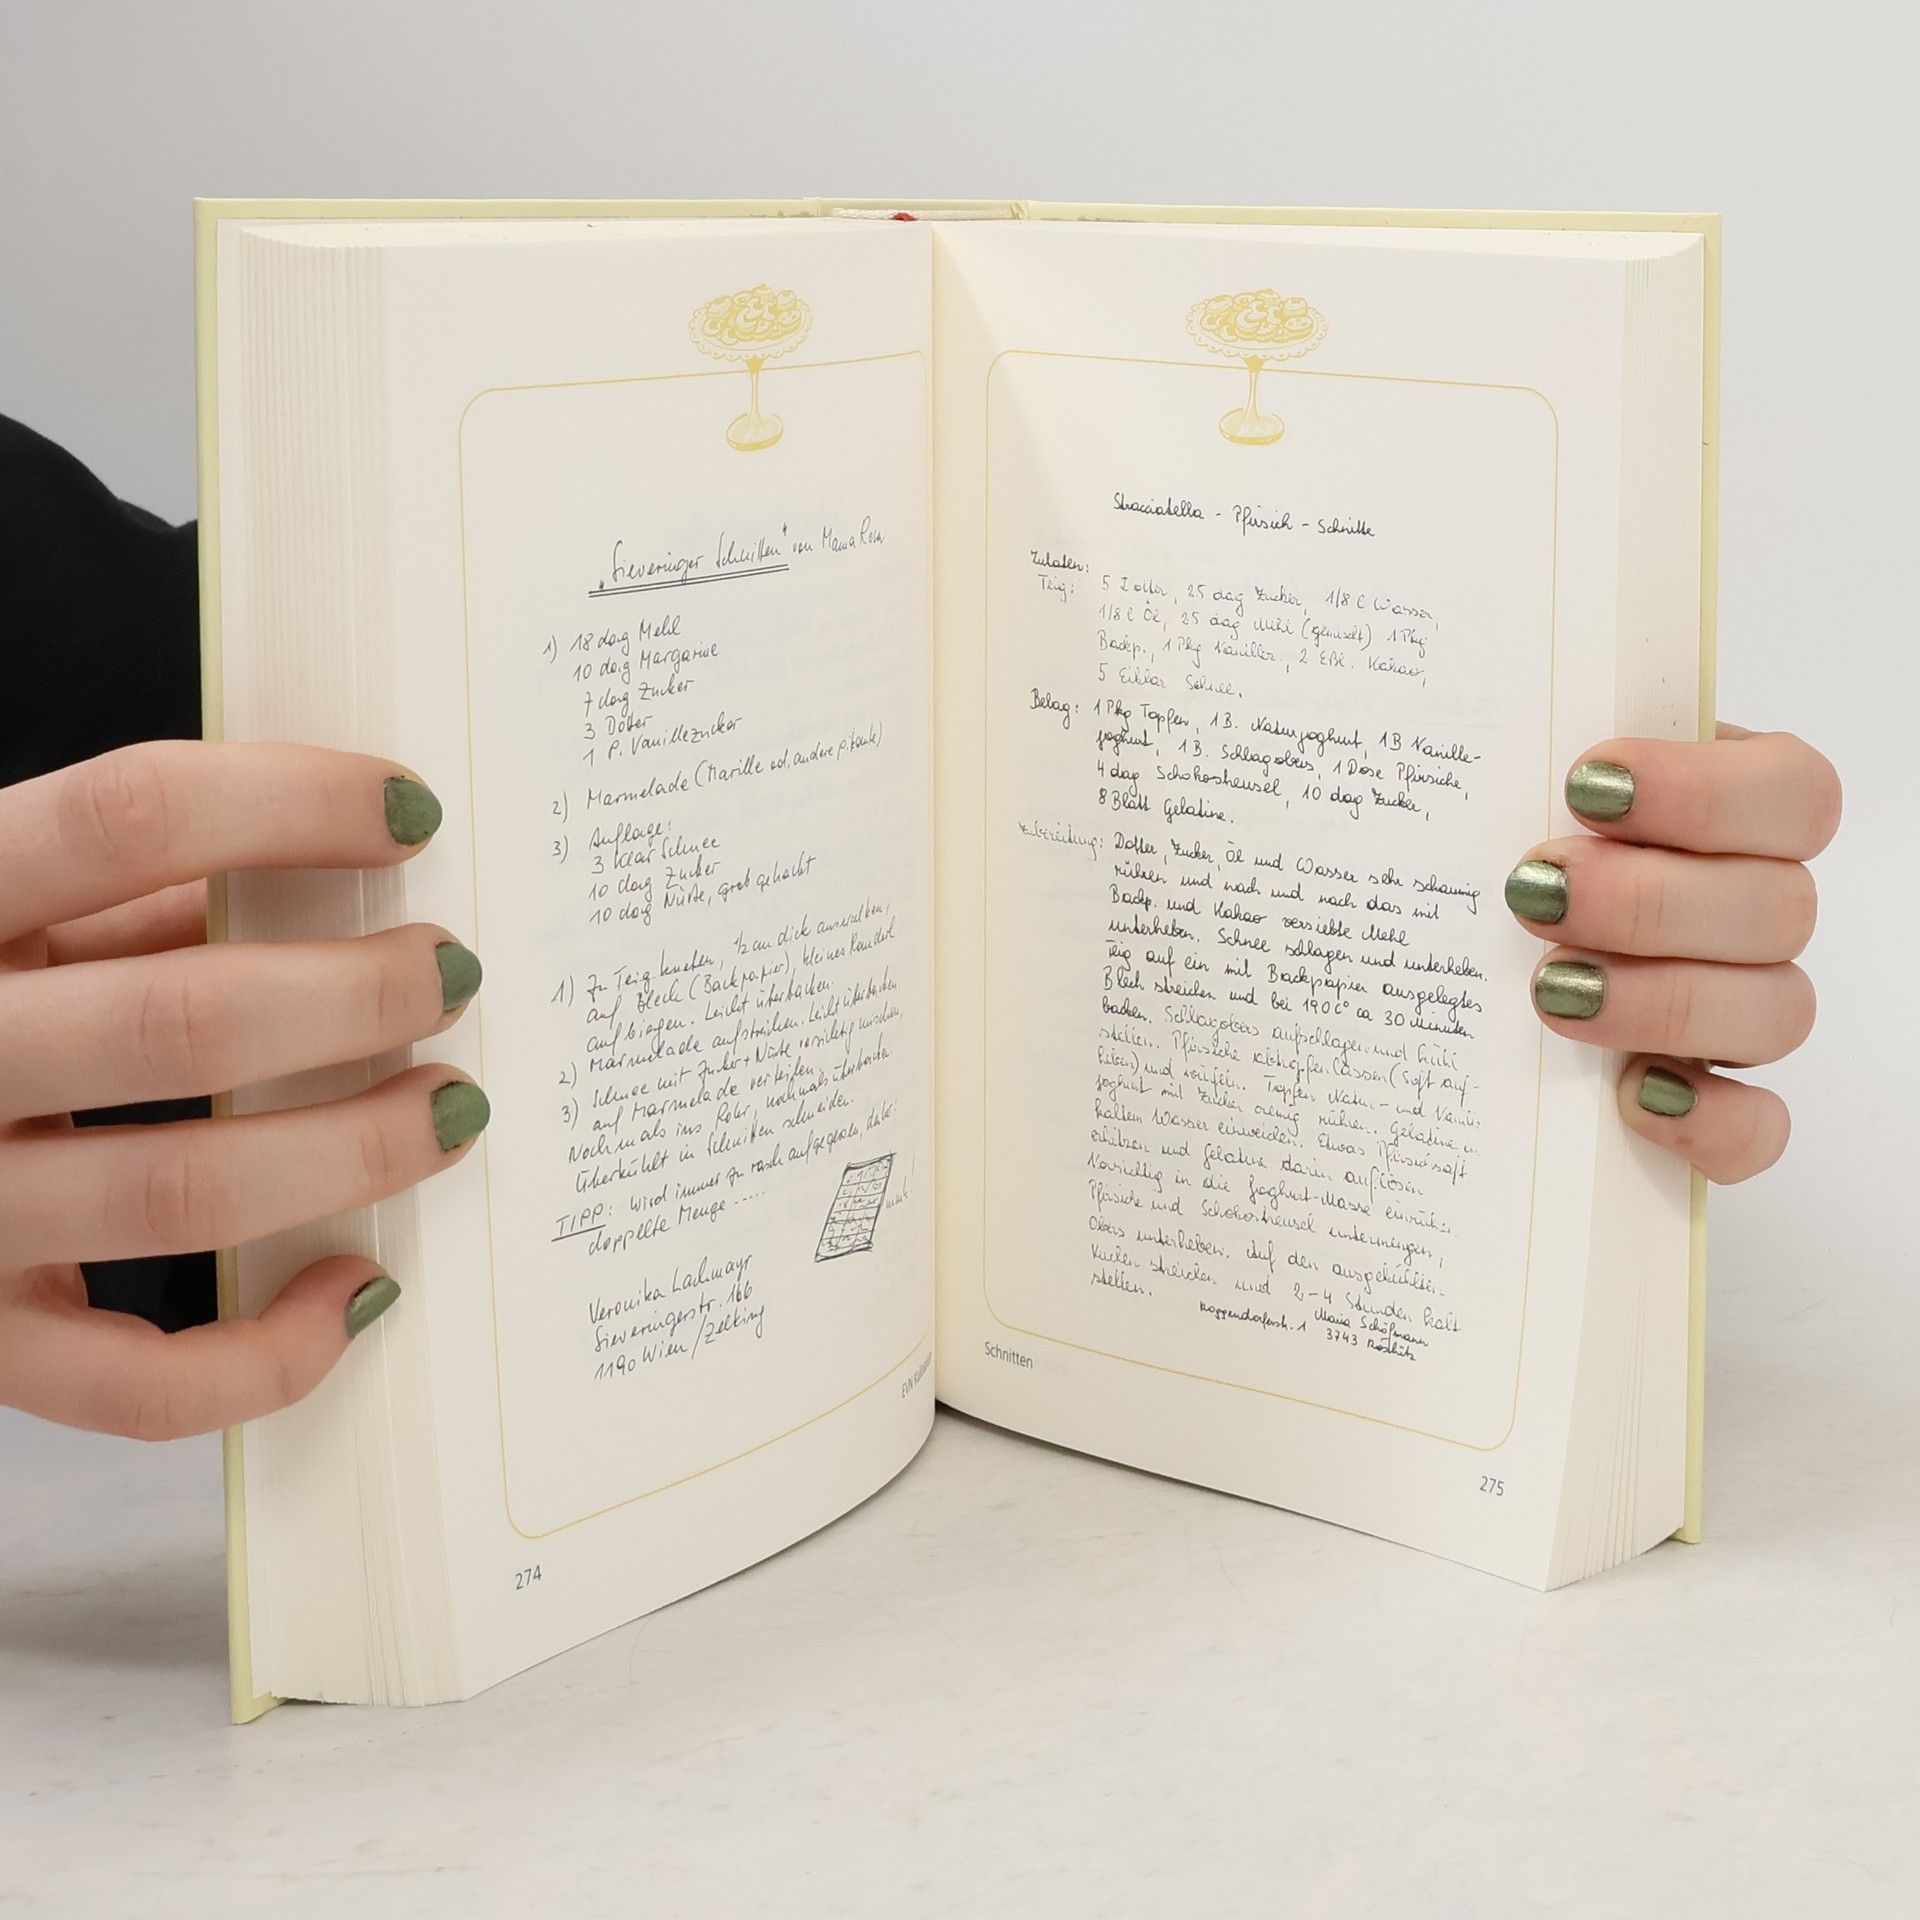 „Sieveringer Schnitten" von Mama Rosa
1) 18 dag Mehl
10 dag Margarine
7 dag Zucker
3 Dotter
1 P. Vanillezucker
2) Marmelade (Marille od. andere pikante)
3) Auflage:
3 Klar Schnee
10 dag Zucker
10 dag Nüsse, grob gehackt
1) Zu Teig kneten, ½ cm dick auswalken,
auf Blech (Backpapier), kleines Randerl
aufbiegen. Leicht überbacken.
2) Marmelade aufstreichen. Leicht überbacken.
3) Schnee mit Zucker + Nüsse vorsichtig mischen,
auf Marmelade verteilen.
Nochmals ins Rohr, nochmals überbacken.
Überkühlt in Schnitten schneiden.
TIPP: Wird immer zu rasch aufgegessen, daher
doppelte Menge .....
Veronika Lachmayr
Sieveringerstr. 166
1190 Wien / Zelking
EVN
274
Stracciatella - Pfirsich - Schnitte
Zutaten:
Teig: 5 Dotter, 25 dag Zucker, 1/8 l Wasser,
1/8 l Öl, 25 dag Mehl (gemischt) 1 Pkg
Backp., 1 Pkg Vanillez., 2 Eßl. Kakao,
5 Eiklar Schnee.
Belag: 1 Pkg Topfen, 1 B. Naturjoghurt, 1 B Vanille-
joghurt, 1 B. Schlagobers, 1 Dose Pfirsiche,
4 dag Schokostreusel, 10 dag Zucker,
8 Blatt Gelatine.
Zubereitung: Dotter, Zucker, Öl und Wasser sehr schaumig
rühren und nach und nach das mit
Backp. und Kakao versiebte Mehl
unterheben. Schnee schlagen und unterheben.
Teig auf ein mit Backpapier ausgelegtes
Blech streichen und bei 190 C° ca 30 Minuten
backen. Schlagobers aufschlagen und kühl
stellen. Pfirsiche abtropfen lassen (Saft auf-
heben) und würfeln. Topfen Natur- und Vanille-
joghurt mit Zucker cremig rühren. Gelatine in
kaltem Wasser einweichen. Etwas Pfirsichsaft
erhitzen und Gelatine darin auflösen
Vorsichtig in die Joghurt-Masse einrühren.
Pfirsiche und Schokostreusel untermengen,
Obers unterheben. Auf den ausgekühlten
Kuchen streichen und 2-4 Stunden kalt
stellen.
Maria Schöfmann
Roggendorferstr. 1 3743 Röschitz
Schnitten
275